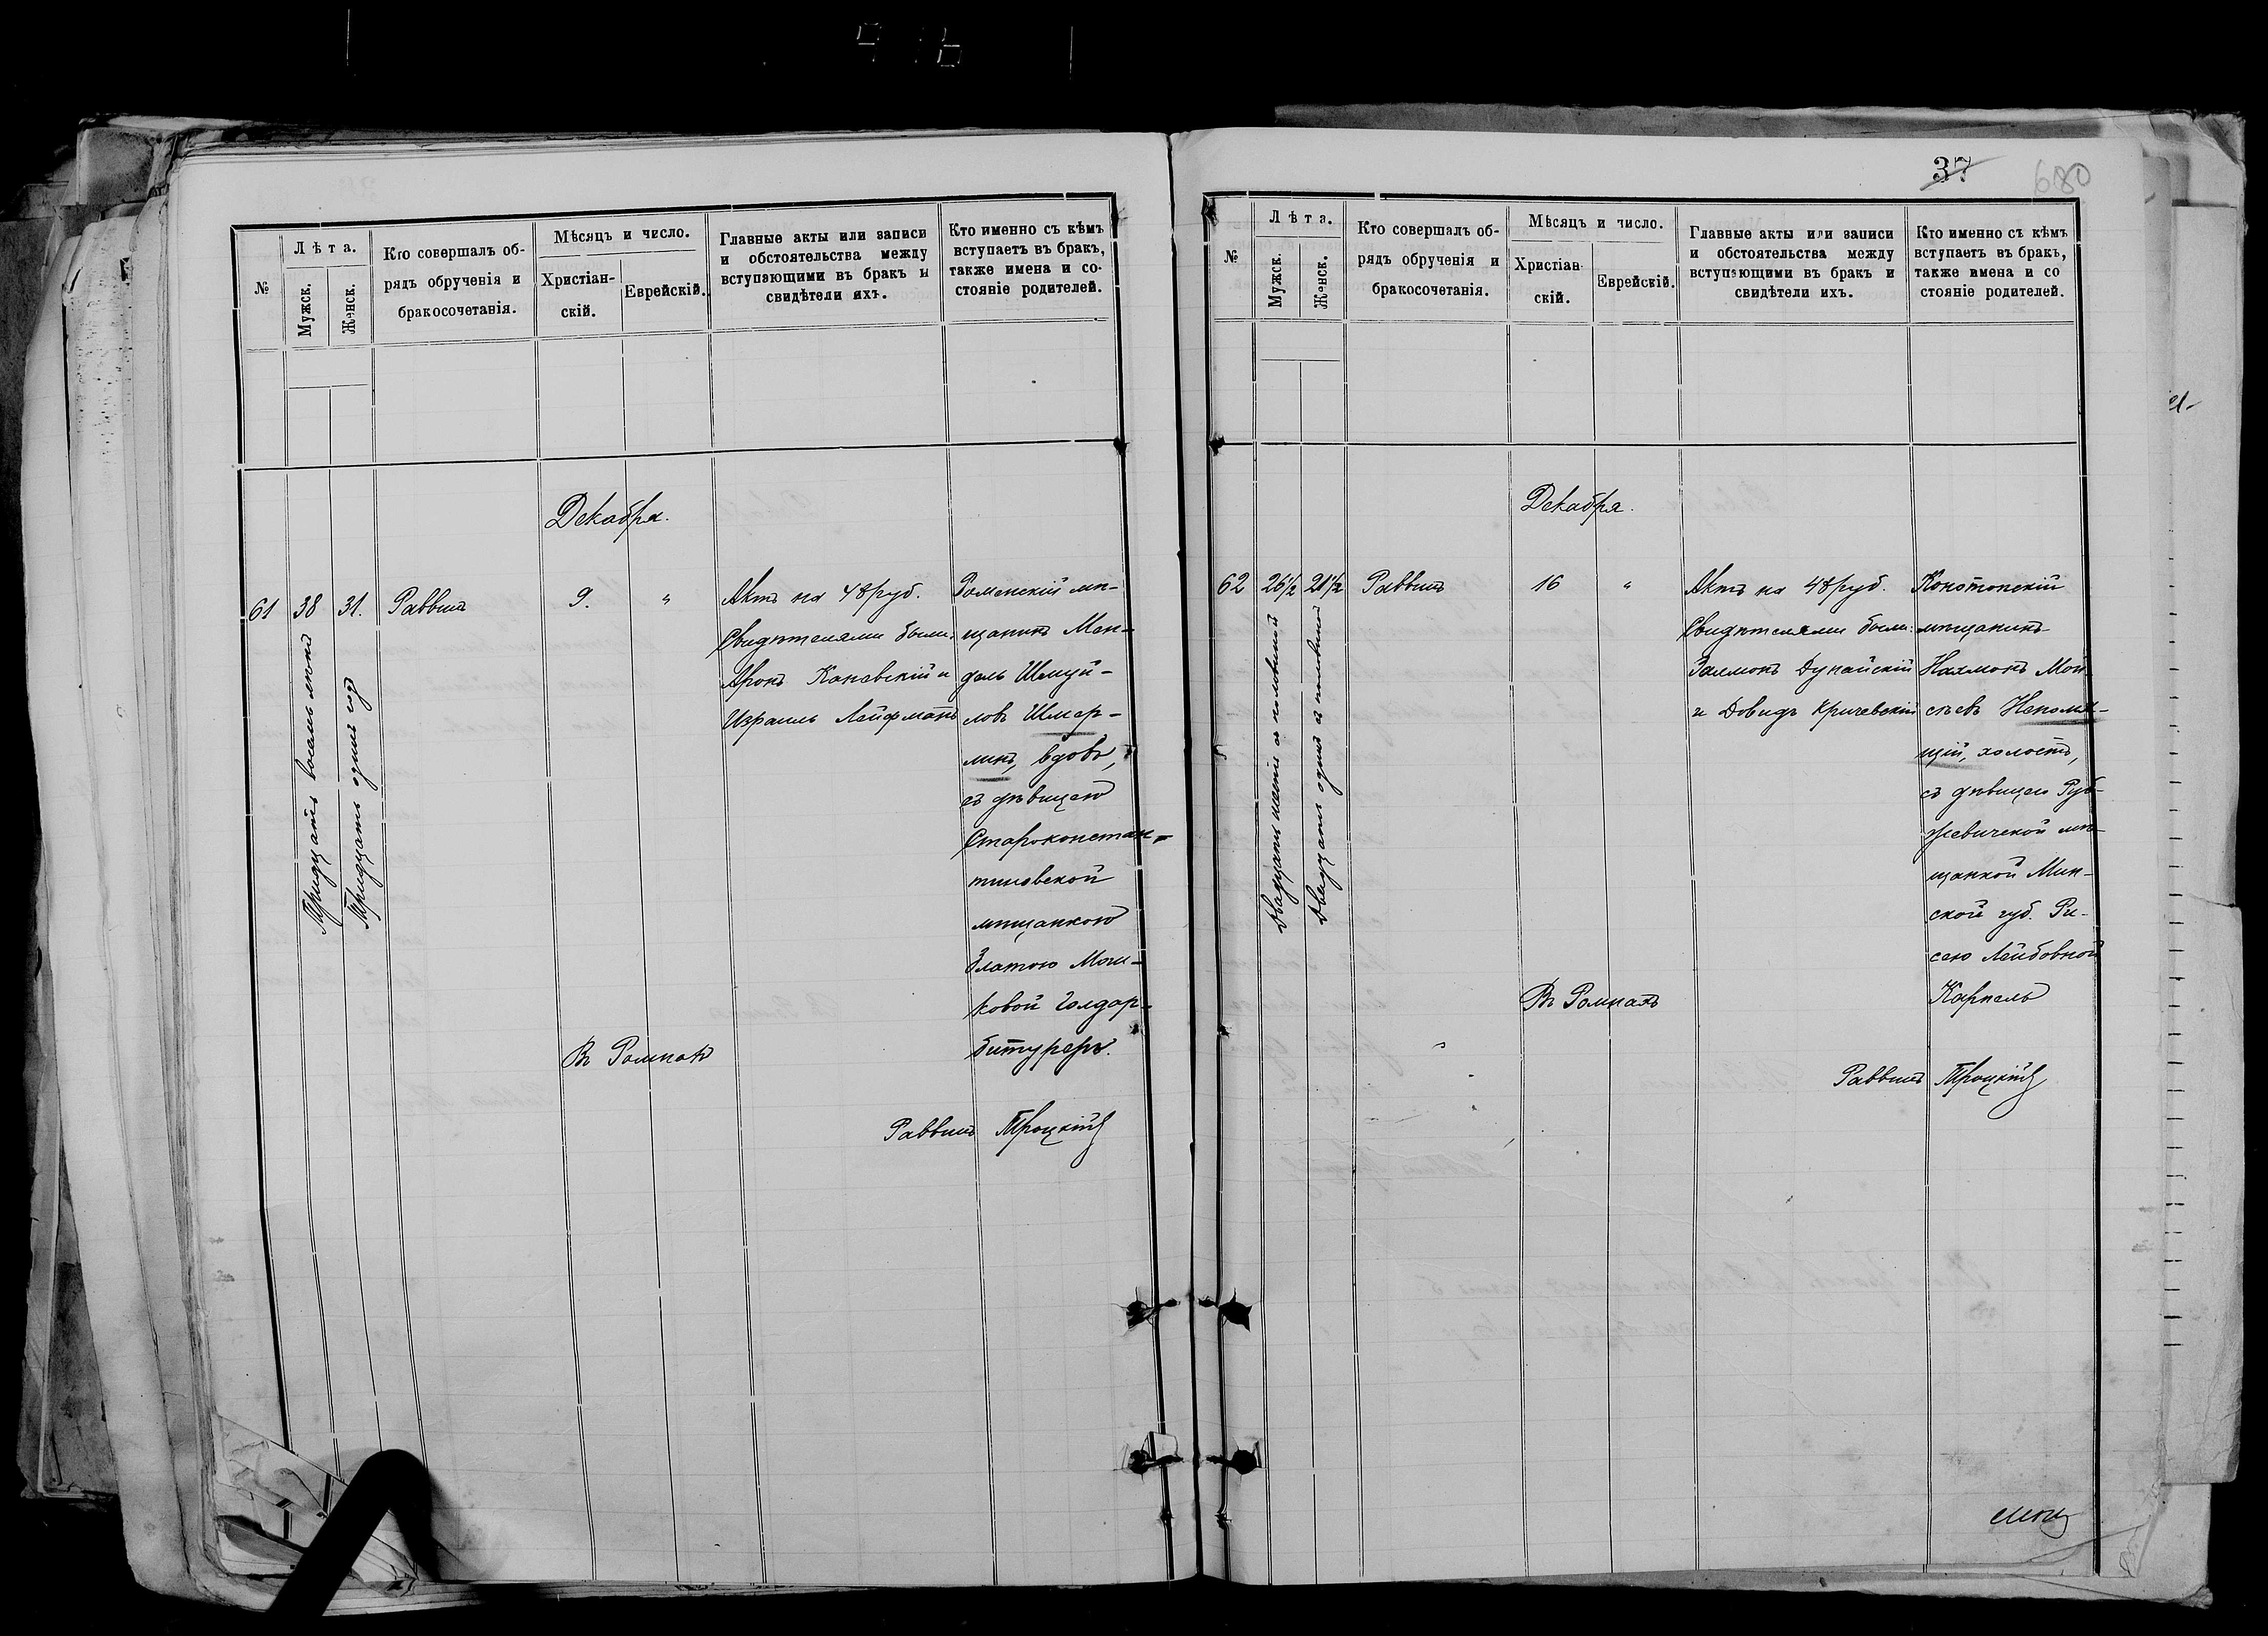 37
680
№
Лѣта.
Мужск.
Женск.
Кто совершалъ об-
рядъ обрученія и
бракосочетанія.
Мѣсяцъ и число.
Христіан-
скій.
Еврейскій.
Главные акты или записи
и обстоятельства между
вступающими въ бракъ и
свидѣтели ихъ.
Кто именно съ кѣмъ
вступаетъ въ бракъ,
также имена и со-
стояніе родителей.
Декабря.
61
38
Тридцать восемь лѣтъ
31.
Тридцать одинъ годъ
Раввинъ
9.
"
Актъ на 48 руб.
Свидѣтелями были:
Аронъ Каневскій и
Израиль Лейфманъ
Роменскій мѣ-
щанинъ Мен-
дель Шмуй-
ловъ Шмер-
линъ, вдовъ,
съ дѣвицею
Староконстан-
тиновской
мѣщанкою
Златою Мош-
ковой Голдар-
битуреръ.
Въ Ромнахъ
Раввинъ Троцкій
№
Лѣта.
Мужск.
Женск.
Кто совершалъ об-
рядъ обрученія и
бракосочетанія.
Мѣсяцъ и число.
Христіан-
скій.
Еврейскій.
Главные акты или записи
и обстоятельства между
вступающими въ бракъ и
свидѣтели ихъ.
Кто именно съ кѣмъ
вступаетъ въ бракъ,
также имена и со
стояніе родителей.
Декабря.
62
26½
Двадцать шесть съ половиной
21½
Двадцать одинъ съ половиной
Раввинъ
16
"
Актъ на 48 руб.
Свидѣтелями были:
Залмонъ Дунайскій
и Довидъ Кричевскій
Конотопскій
мѣщанинъ
Нахмонъ Мой-
сѣевъ Непомня-
щій, холостъ,
съ дѣвицею Руб-
жевичской мѣ-
щанкой Мин-
ской губ. Ри-
сею Лейбовной
Карпель
Въ Ромнахъ
Раввинъ Троцкій